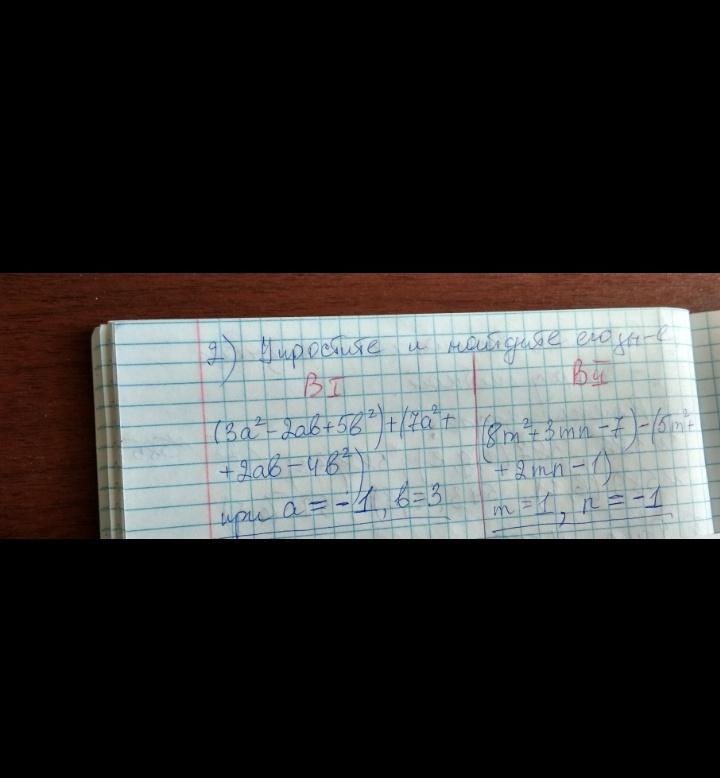 2) Упростите и найдите его зн-е
В I
(3a²-2ab+5b²)+(7a²+
+2ab-4b²)
при a=-1, b=3
В II
(8m²+3mn-7)-(5m²+
+2mn-1)
m=1, n=-1